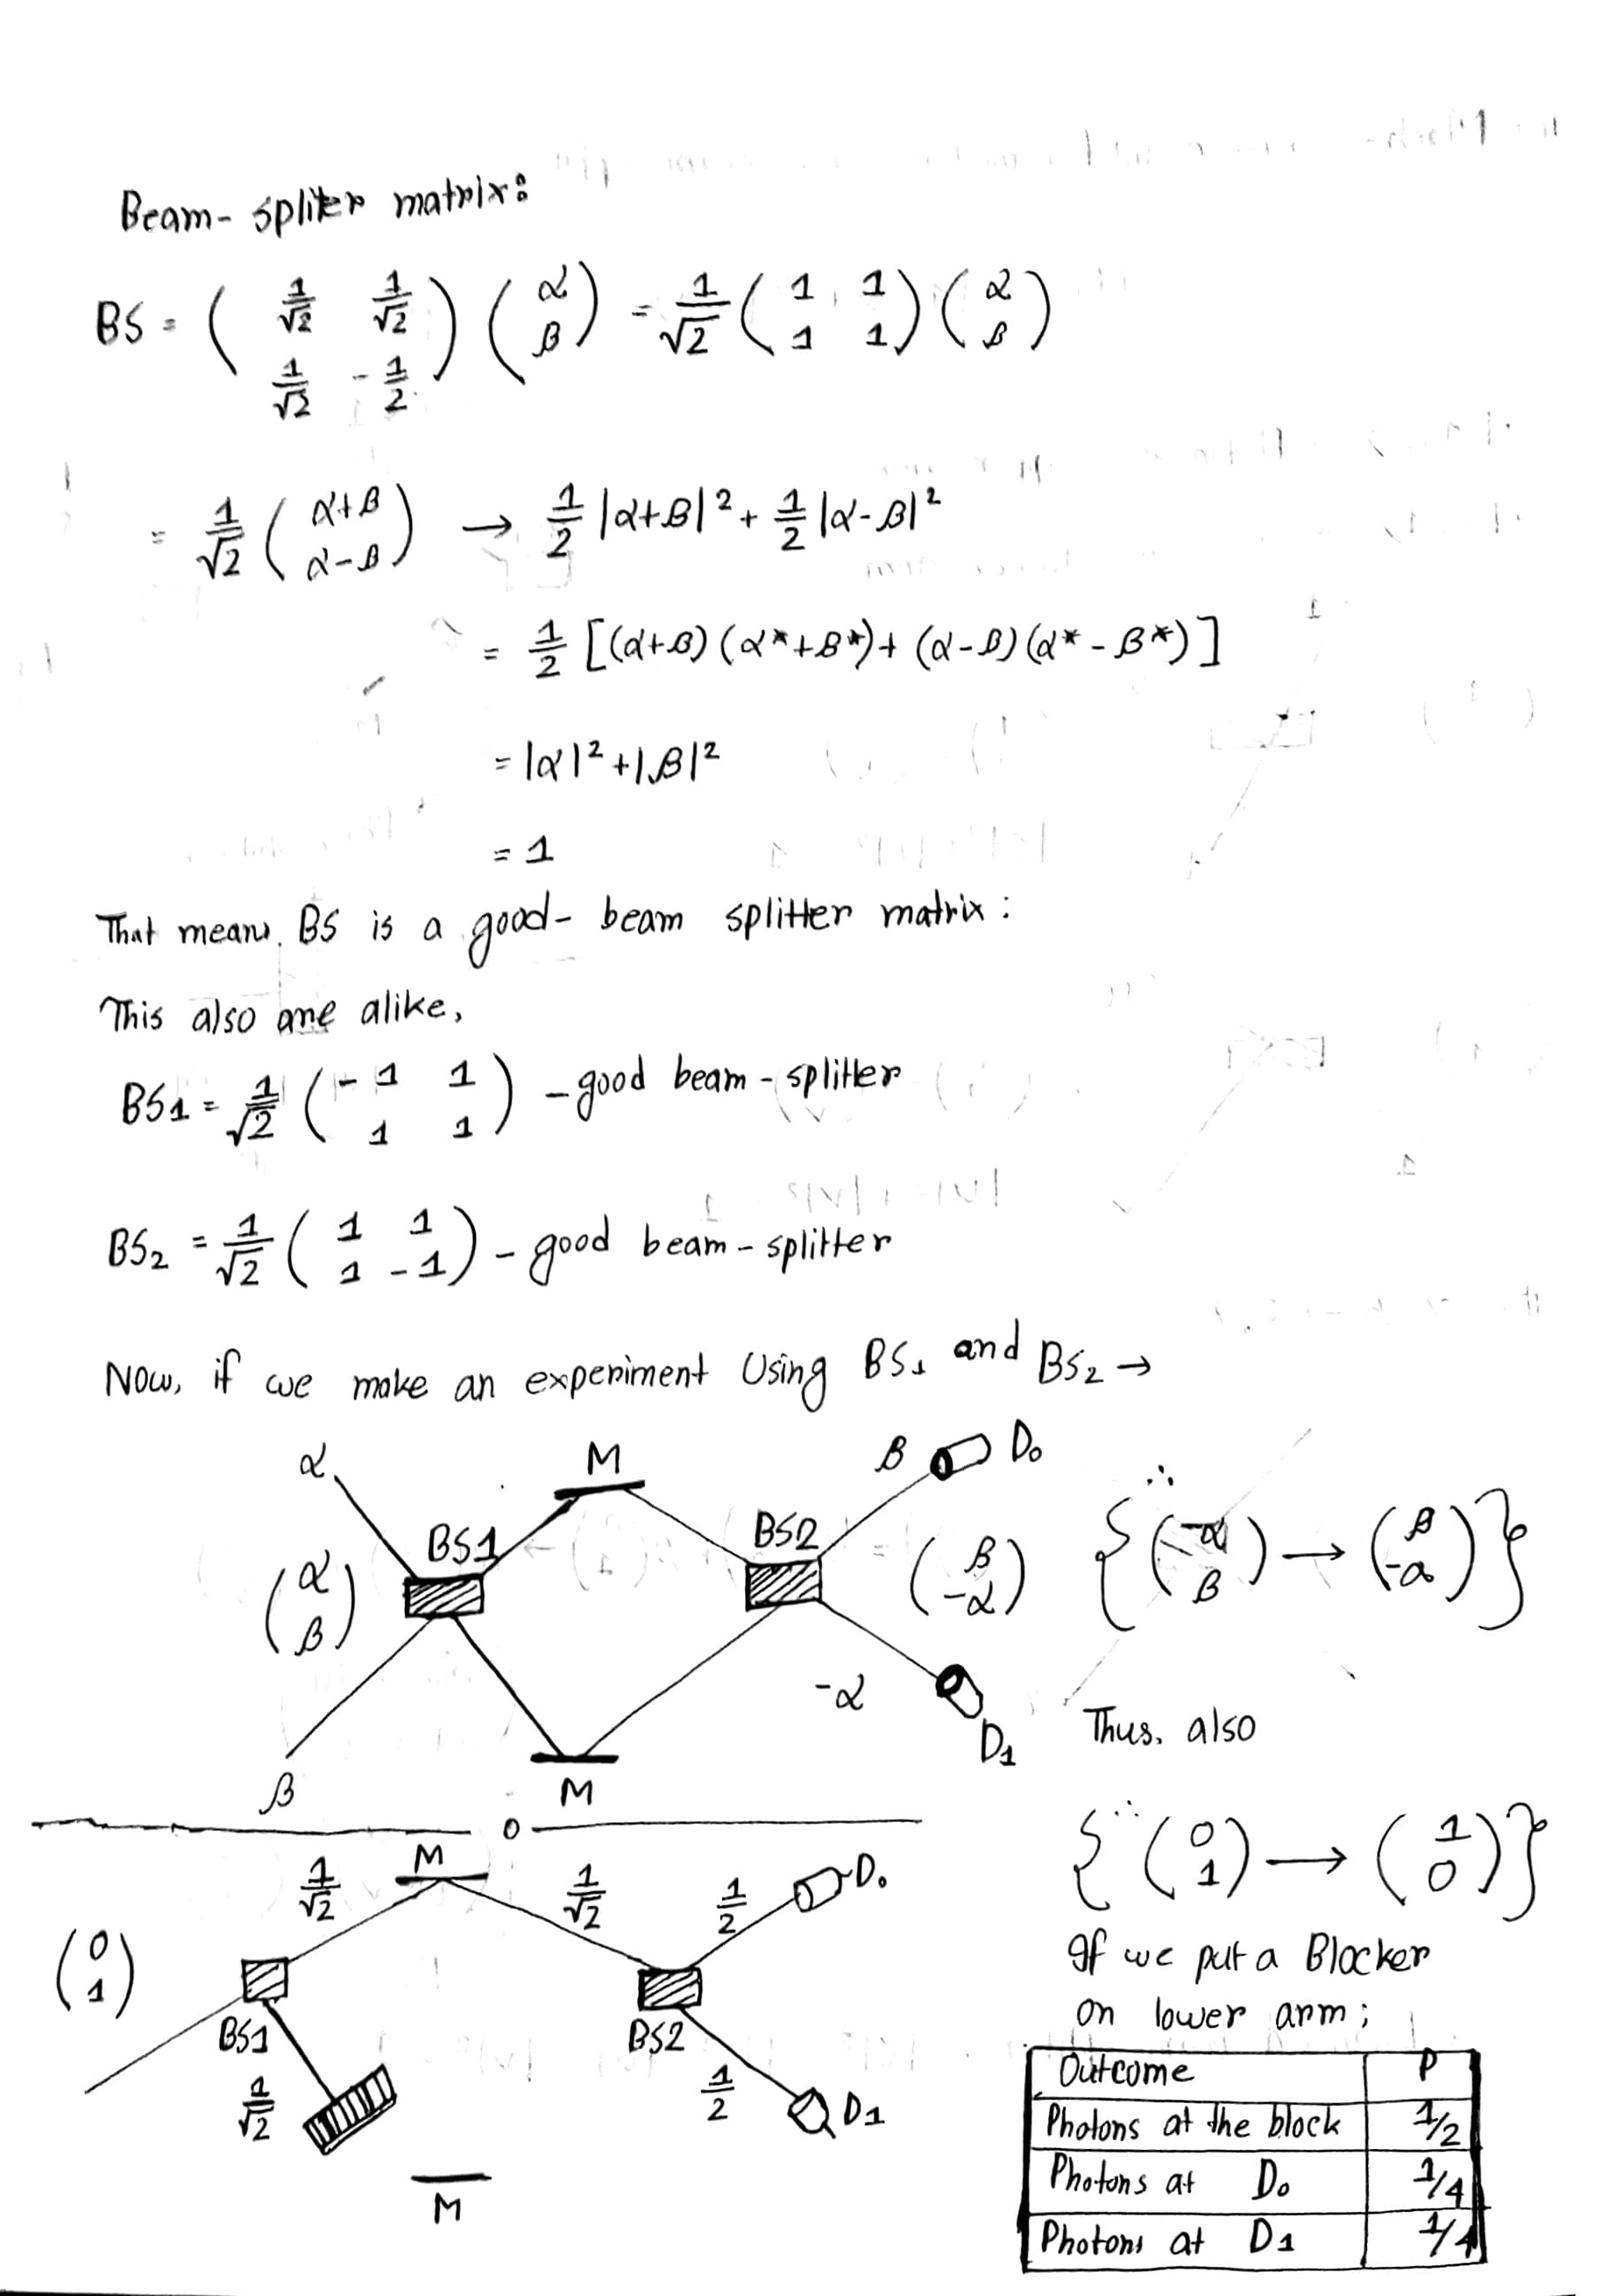 Beam-spliter matrix:
BS = ( 1/√2 1/√2 ; 1/√2 -1/2 ) ( α ; β ) = 1/√2 ( 1 1 ; 1 1 ) ( α ; β )
= 1/√2 ( α+β ; α-β ) → 1/2 |α+β|² + 1/2 |α-β|²
= 1/2 [(α+β) (α*+β*) + (α-β) (α* - β*)]
= |α|² + |β|²
= 1
That means. BS is a good- beam splitter matrix:
This also are alike,
BS1 = 1/√2 ( -1 1 ; 1 1 ) - good beam-splitter
BS2 = 1/√2 ( 1 1 ; 1 -1 ) - good beam-splitter
Now, if we make an experiment Using BS1 and BS2 →
α
M
β
D0
BS1
BS2
( α ; β )
( β ; -α )
∴ { ( -α ; β ) → ( β ; -α ) }
-α
D1
β
M
Thus, also
0
{ ∵ ( 0 ; 1 ) → ( 1 ; 0 ) }
1/√2
M
1/√2
1/2
D0
( 0 ; 1 )
BS1
BS2
1/√2
1/2
D1
M
If we put a Blocker
on lower arm;
Outcome P
Photons at the block 1/2
Photons at D0 1/4
Photons at D1 1/4